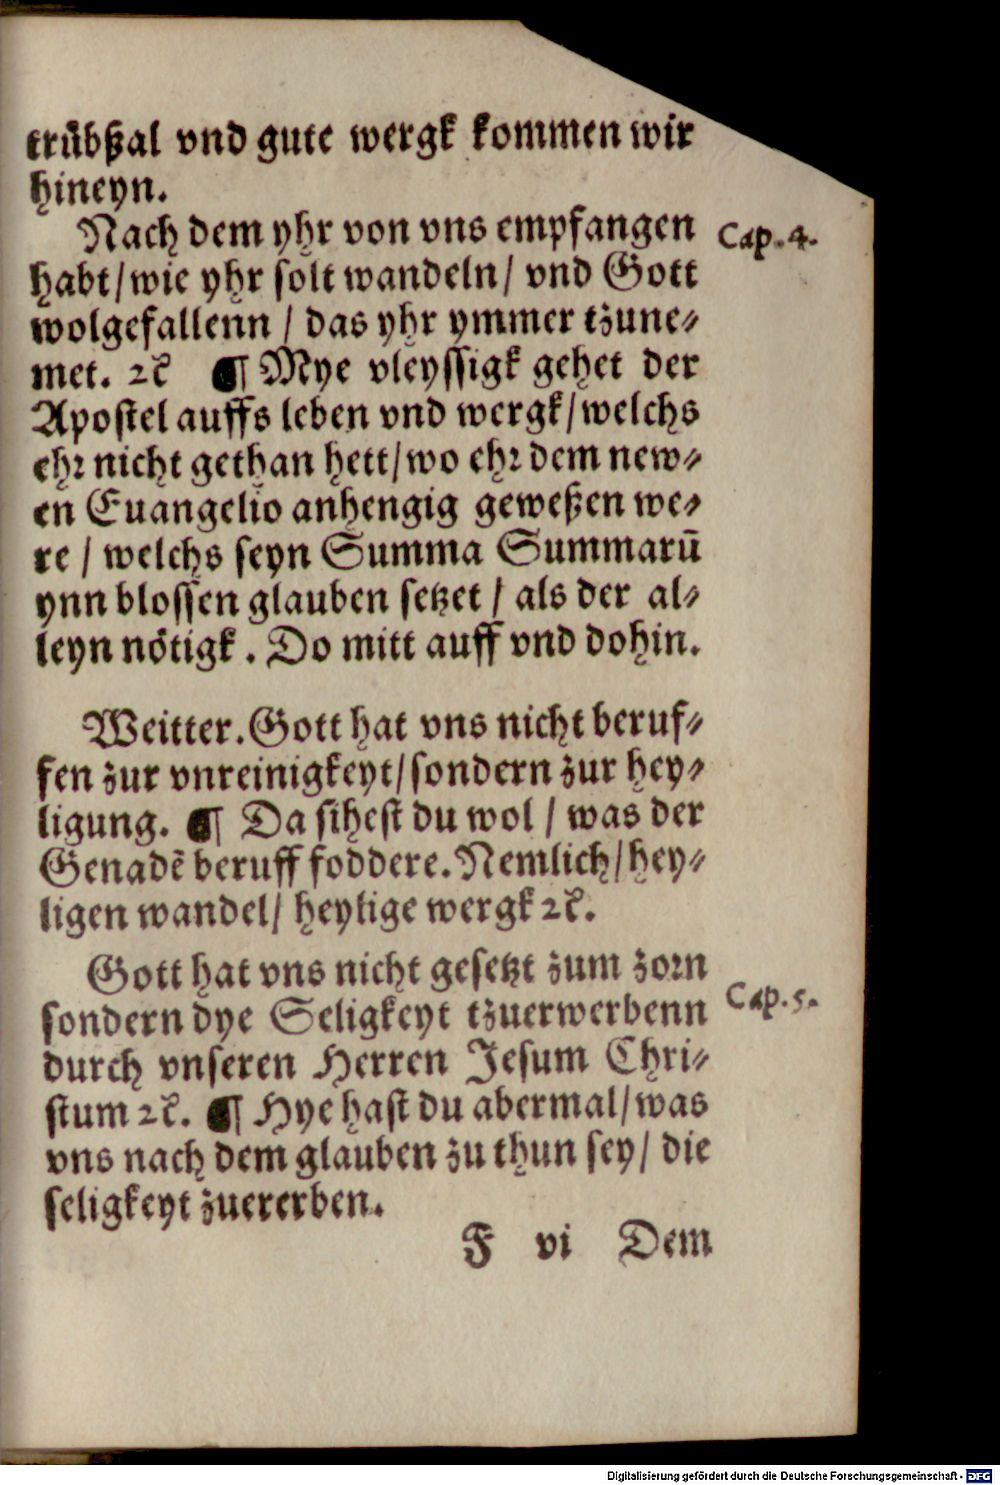 truͤbßal vnd gute wergk kommen wir
hineyn.
Nach dem yhr von vns empfangen
Cap.4.
habt/wie yhr solt wandeln/ vnd Gott
wolgefallenn / das yhr ymmer tzune⸗
met. ꝛc̃ ¶ Mye vleyssigk gehet der
Apostel auffs leben vnd wergk/welchs
ehr nicht gethan hett/wo ehr dem new⸗
en Euangelio anhengig geweßen we⸗
re / welchs seyn Summa Summarū
ynn blossen glauben setzet / als der al⸗
leyn noͤtigk . Do mitt auff vnd dohin.
Weitter. Gott hat vns nicht beruf⸗
fen zur vnreinigkeyt/sondern zur hey⸗
ligung. ¶ Da sihest du wol / was der
Genadē beruff foddere. Nemlich/hey⸗
ligen wandel/ heylige wergk ꝛc̃.
Gott hat vns nicht gesetzt zum zorn
Cap.5.
sondern dye Seligkeyt tzuerwerbenn
durch vnseren Herren Jesum Chri⸗
stum ꝛc̃. ¶ Hye hast du abermal/was
vns nach dem glauben zu thun sey/ die
seligkeyt zuererben.
F vi Dem
Digitalisierung gefördert durch die Deutsche Forschungsgemeinschaft - DFG